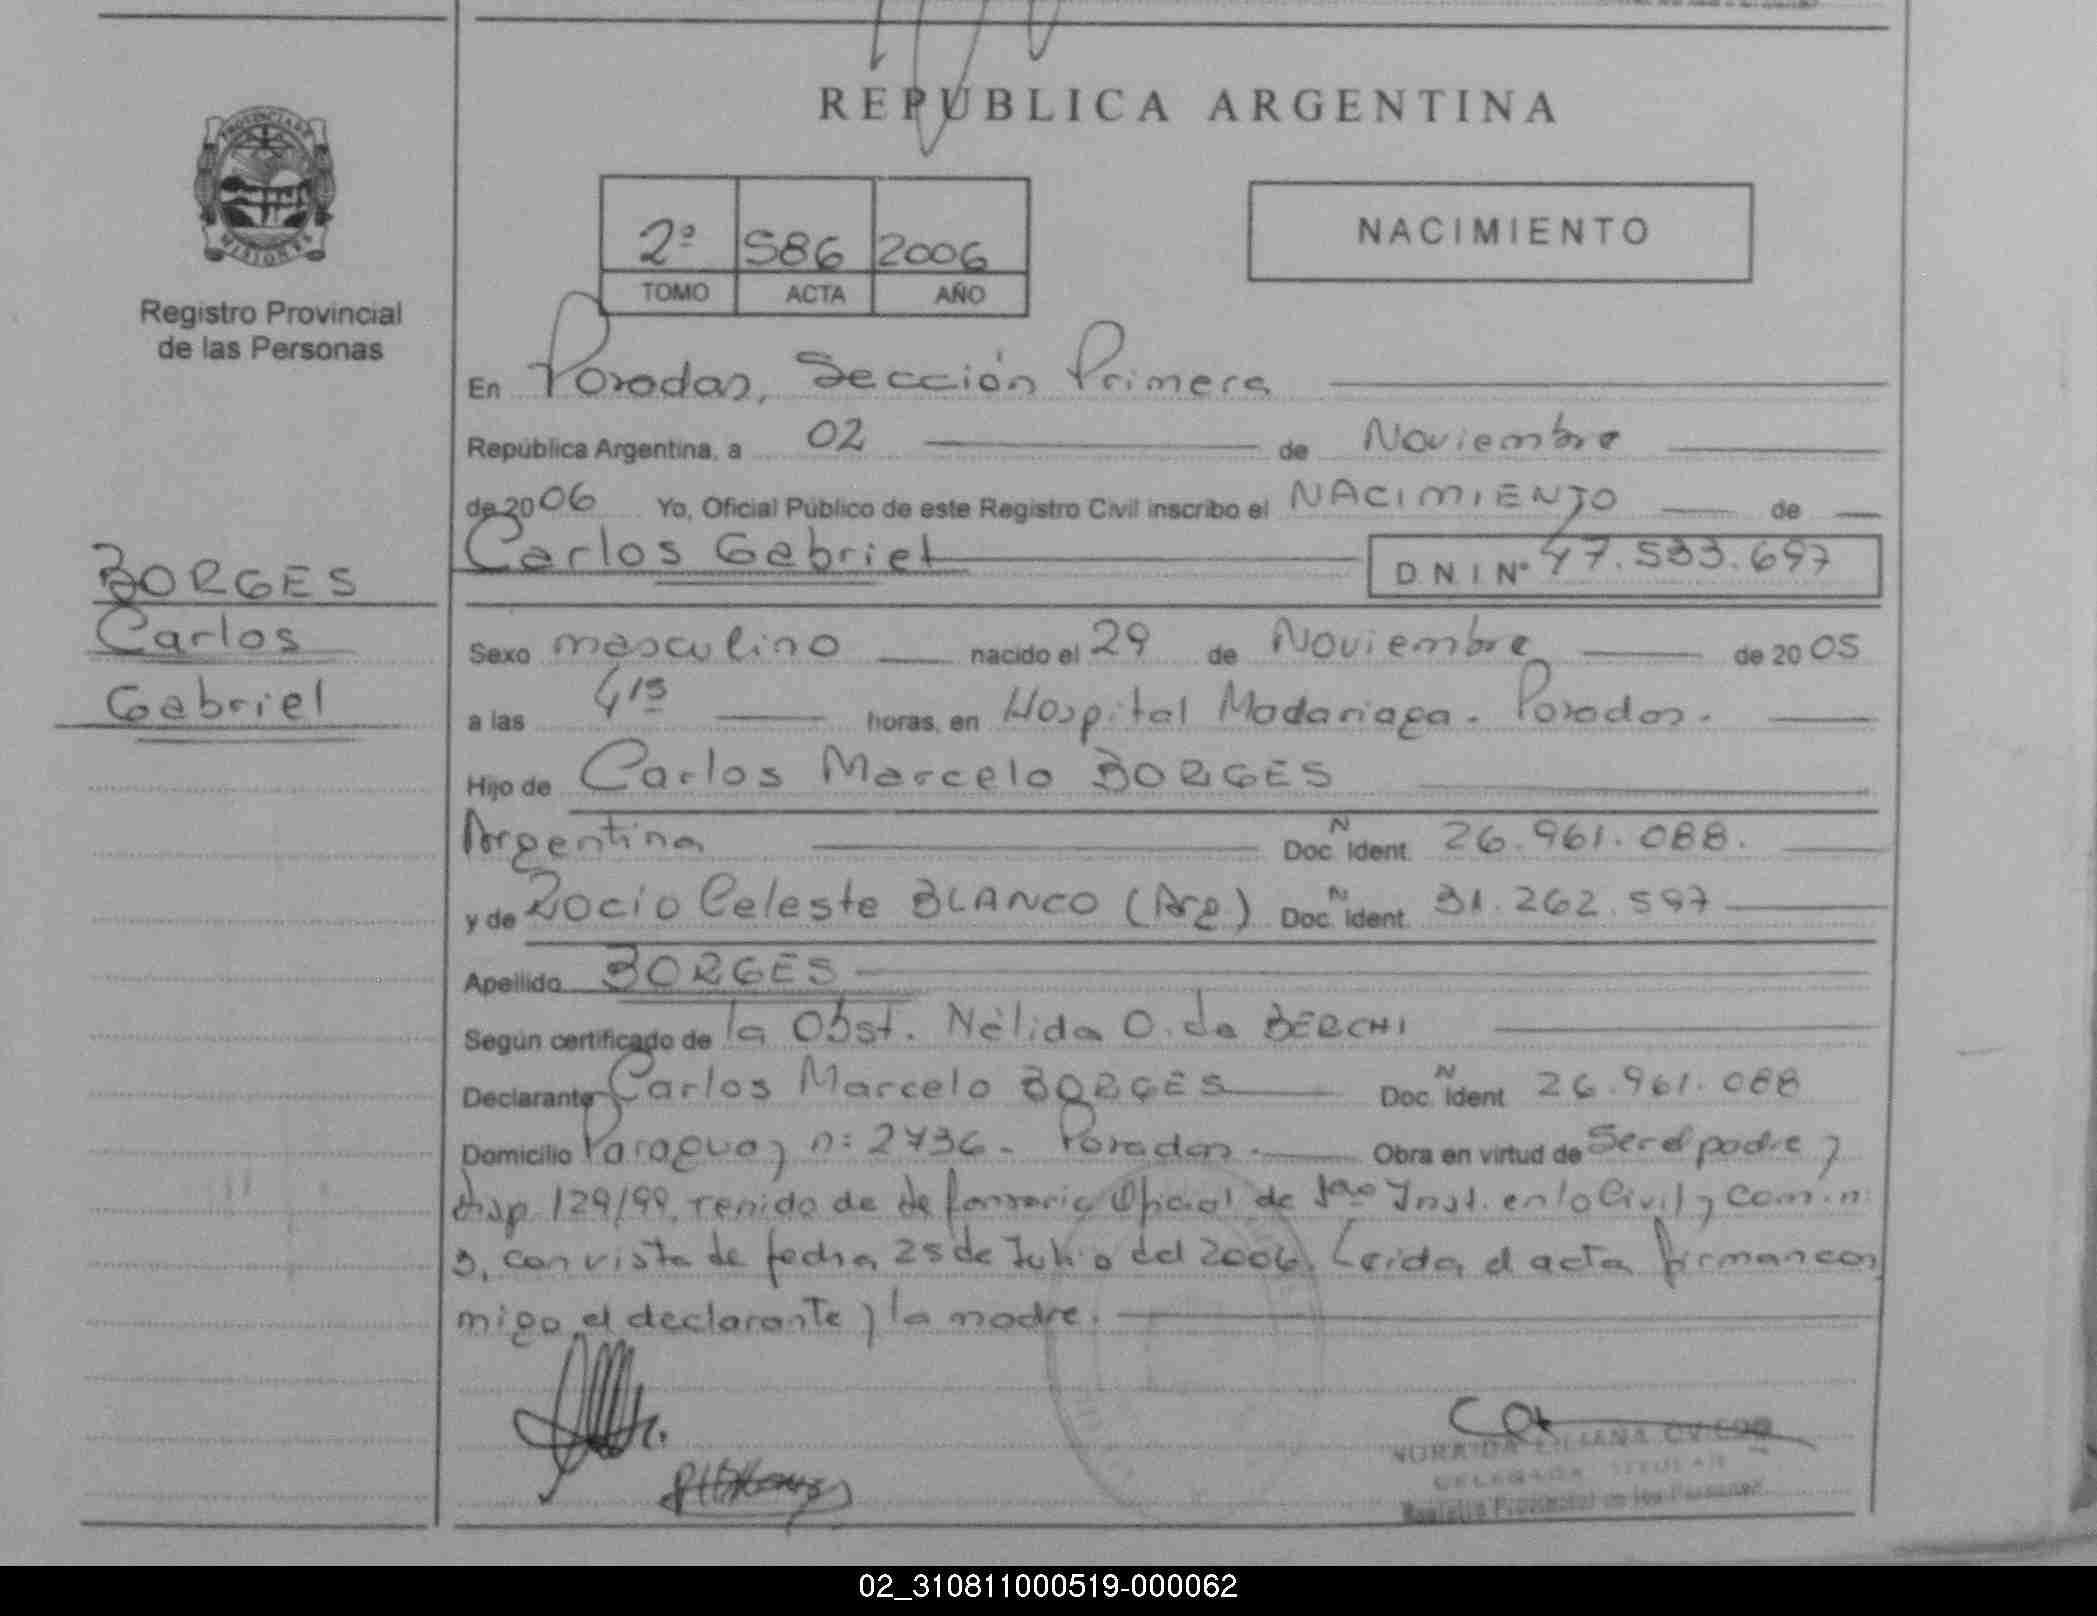 REPUBLICA ARGENTINA
PROVINCIA DE
MISIONES
Registro Provincial
de las Personas
2º 586 2006
TOMO ACTA AÑO
NACIMIENTO
En Posadas, Sección Primera
República Argentina, a 02 de Noviembre
de 2006 Yo, Oficial Público de este Registro Civil inscribo el NACIMIENTO de
Carlos Gabriel DNI Nº 47.533.697
BORGES
Carlos
Gabriel
Sexo masculino nacido el 29 de Noviembre de 2005
a las 4 15 horas, en Hospital Madariaga. Posadas.
Hijo de Carlos Marcelo BORGES
Argentina Doc. Ident. N 26.961.088.
y de Rocio Celeste BLANCO (Arg.) Doc. Ident. N 31.262.597
Apellido BORGES
Según certificado de la Obst. Nélida O. de BERCHI
Declarante Carlos Marcelo BORGES Doc. Ident N 26.961.088
Domicilio Paraguay n: 2736 - Posadas. Obra en virtud de Ser el padre y
disp. 129/99, venido de defensoria Oficial de 1ra Inst. en lo Civil y Com. n:
3, con vista de fecha 25 de Julio del 2006. Leida el acta firman con
migo el declarante y la madre.
LILIANA
DELEGADA TITULAR
Registro Provincial de las Personas
02_310811000519-000062